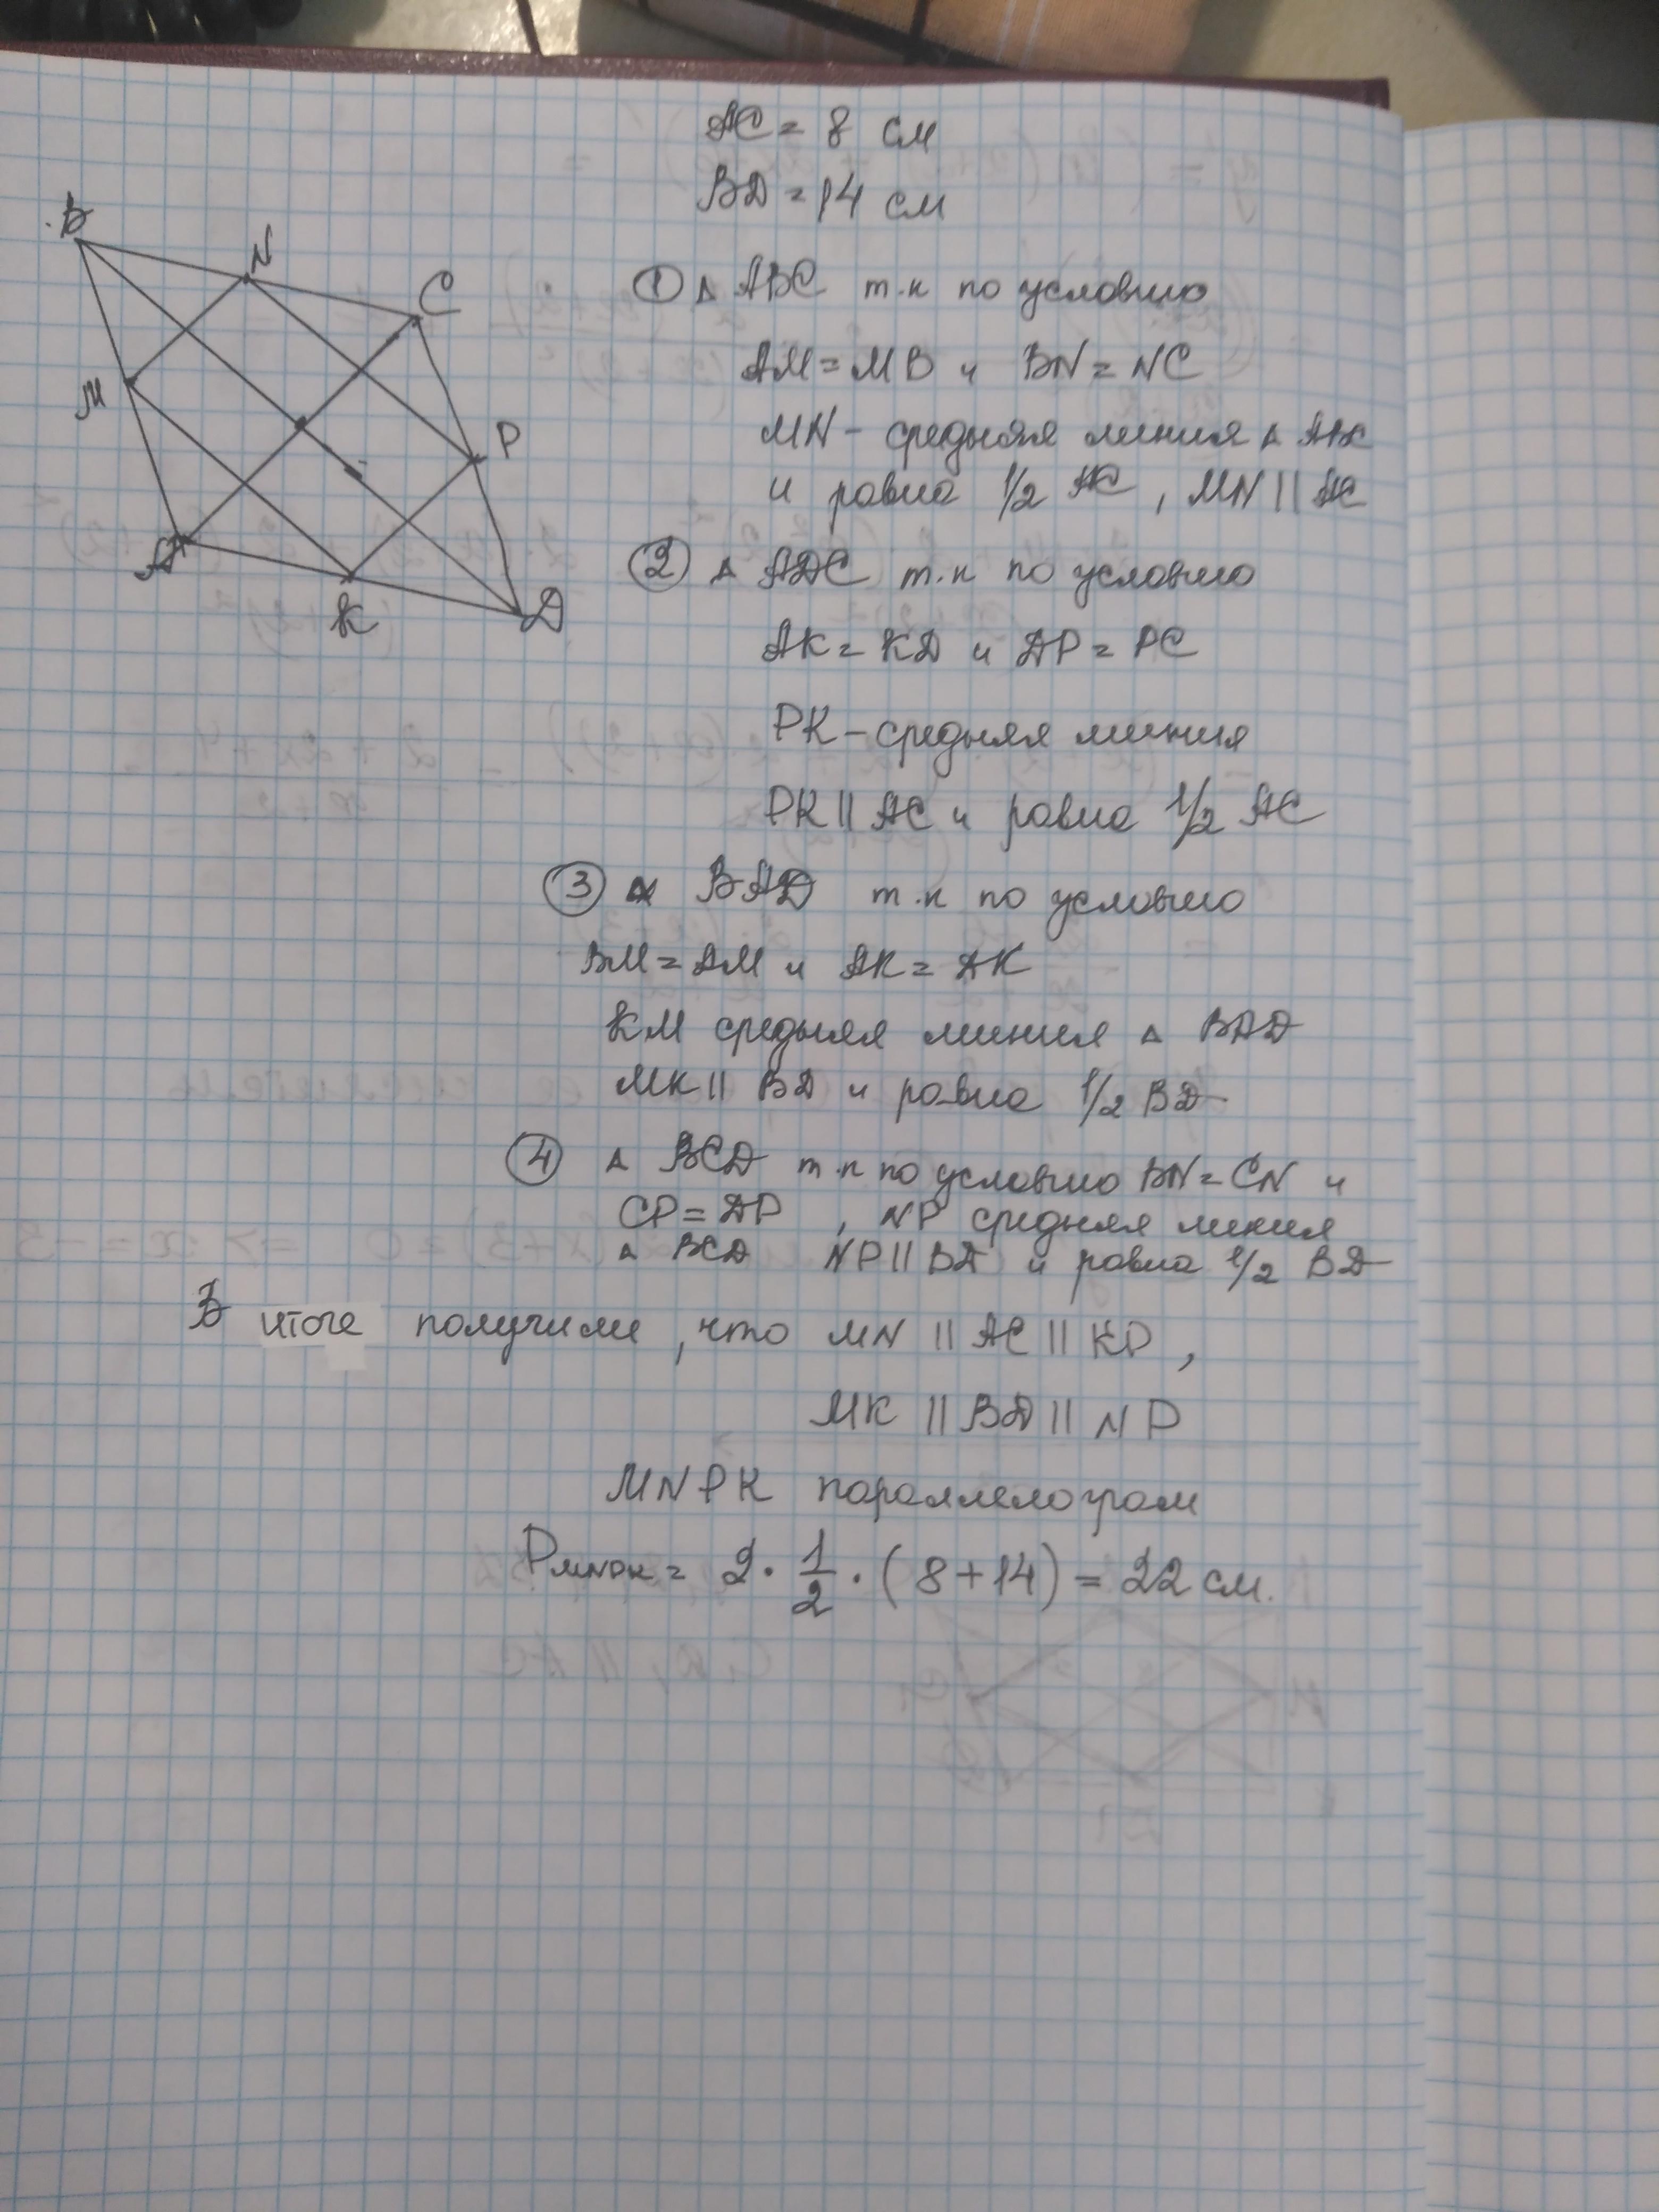 AC = 8 см
BD = 14 см
B
N
C
M
P
A
K
D
① Δ ABC т.к по условию
AM = MB и BN = NC
MN - средняя линия Δ ABC
и равна 1/2 AC , MN || AC
② Δ ADC т.к по условию
AK = KD и DP = PC
PK - средняя линия
PK || AC и равна 1/2 AC
③ Δ BAD т.к по условию
BM = AM и AK = DK
KM средняя линия Δ BAD
MK || BD и равна 1/2 BD
④ Δ BCD т.к по условию BN = CN и
CP = DP , NP средняя линия
Δ BCD NP || BD и равна 1/2 BD
В итоге получили , что MN || AC || KP ,
MK || BD || NP
MNPK параллелограм
P MNPK = 2 · 1/2 · ( 8 + 14 ) = 22 см.